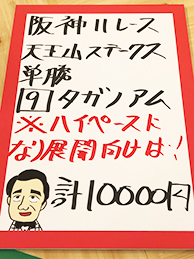 阪神11レース
天王山ステークス
単勝
9 タガノアム
※ハイペースと
なり展開向けば!
計10000円